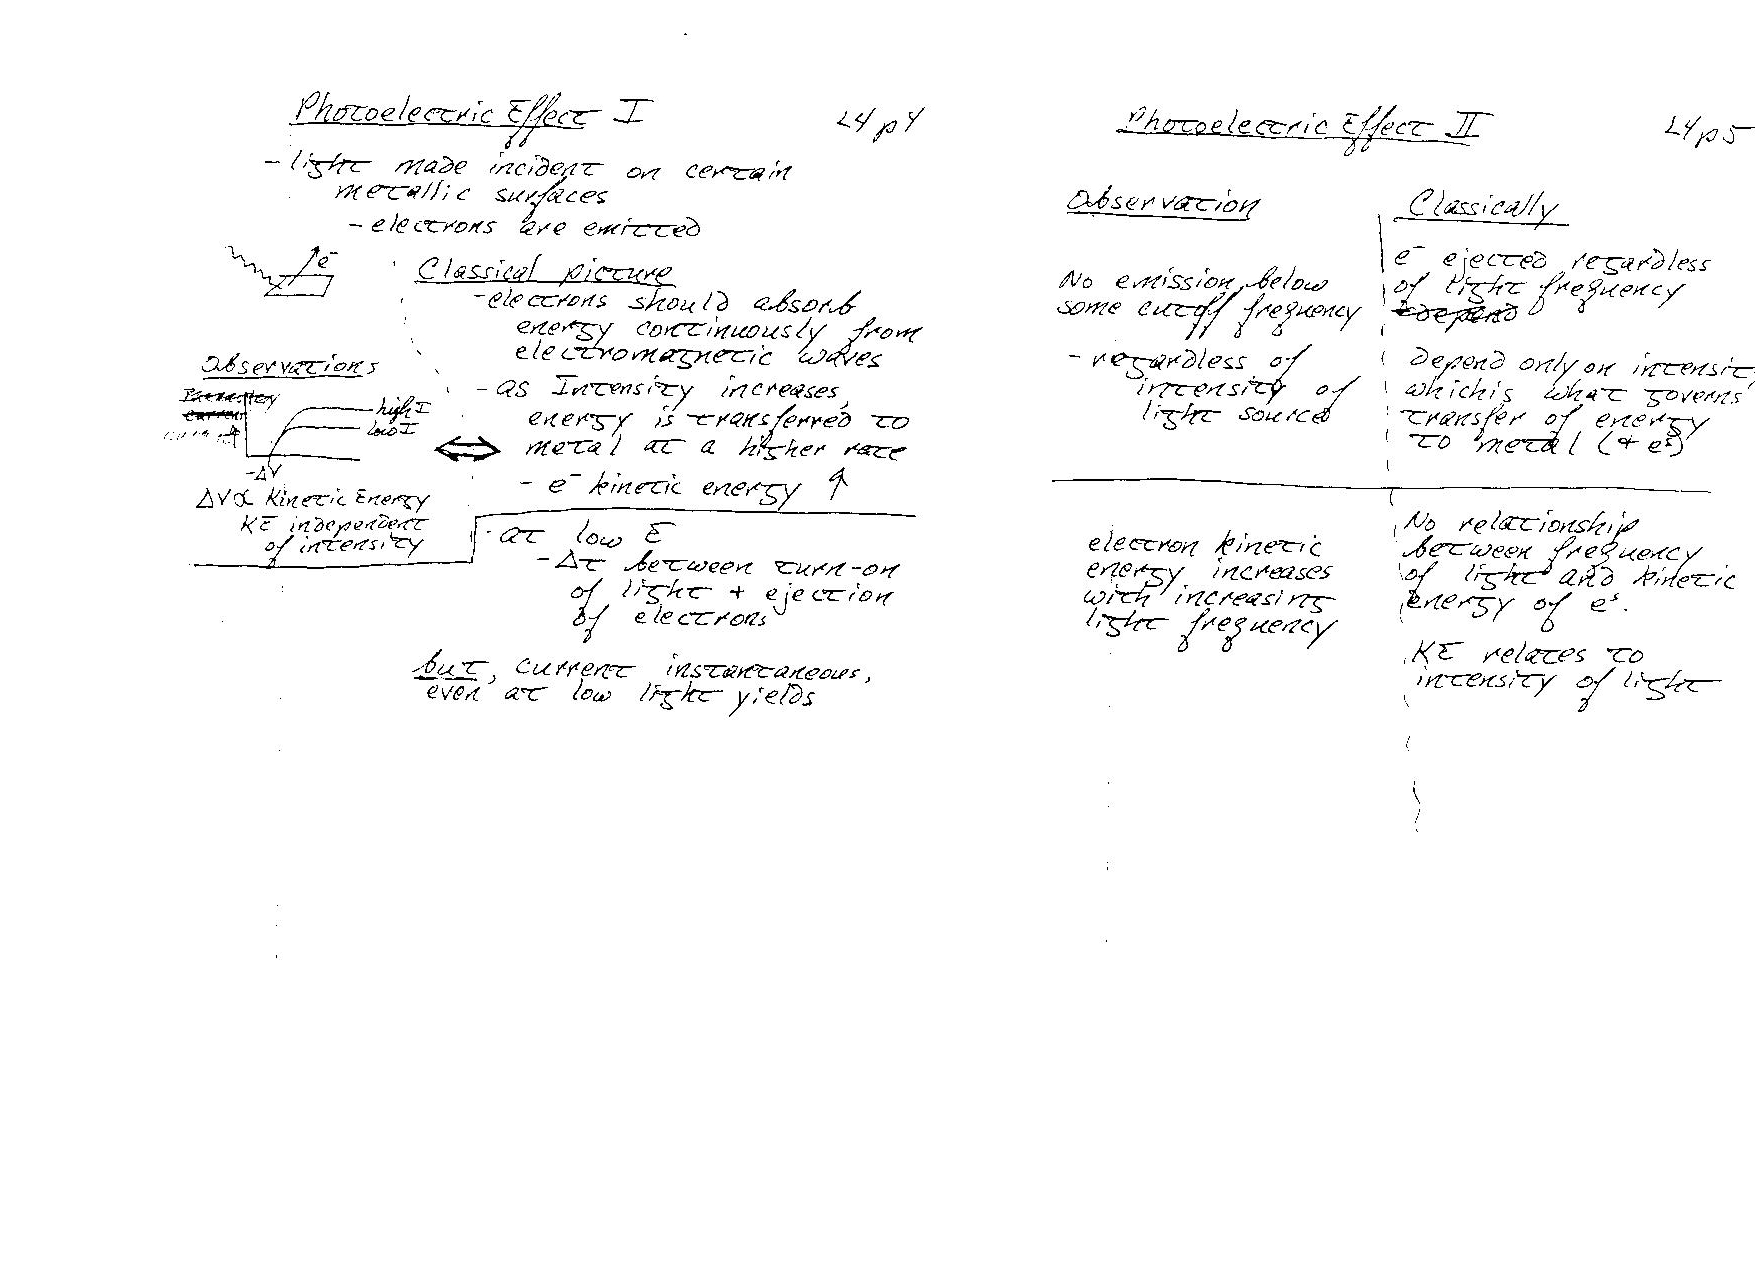 Photoelectric Effect I
L4 p4
- light made incident on certain
metallic surfaces
- electrons are emitted
e⁻
Classical picture
- electrons should absorb
energy continuously from
electromagnetic waves
- as Intensity increases,
energy is transferred to
metal at a higher rate
- e⁻ kinetic energy ↑
Observations
high I
low I
-ΔV
ΔV ∝ Kinetic Energy
KE independent
of intensity
- at low E
- Δt between turn-on
of light + ejection
of electrons
but, current instantaneous,
even at low light yields
Photoelectric Effect II
L4 p5
Observation
No emission below
some cutoff frequency
- regardless of
intensity of
light source
electron kinetic
energy increases
with increasing
light frequency
Classically
e⁻ ejected regardless
of light frequency
depend only on intensit
which is what governs
transfer of energy
to metal (+ e's)
No relationship
between frequency
of light and kinetic
energy of e's.
KE relates to
intensity of light